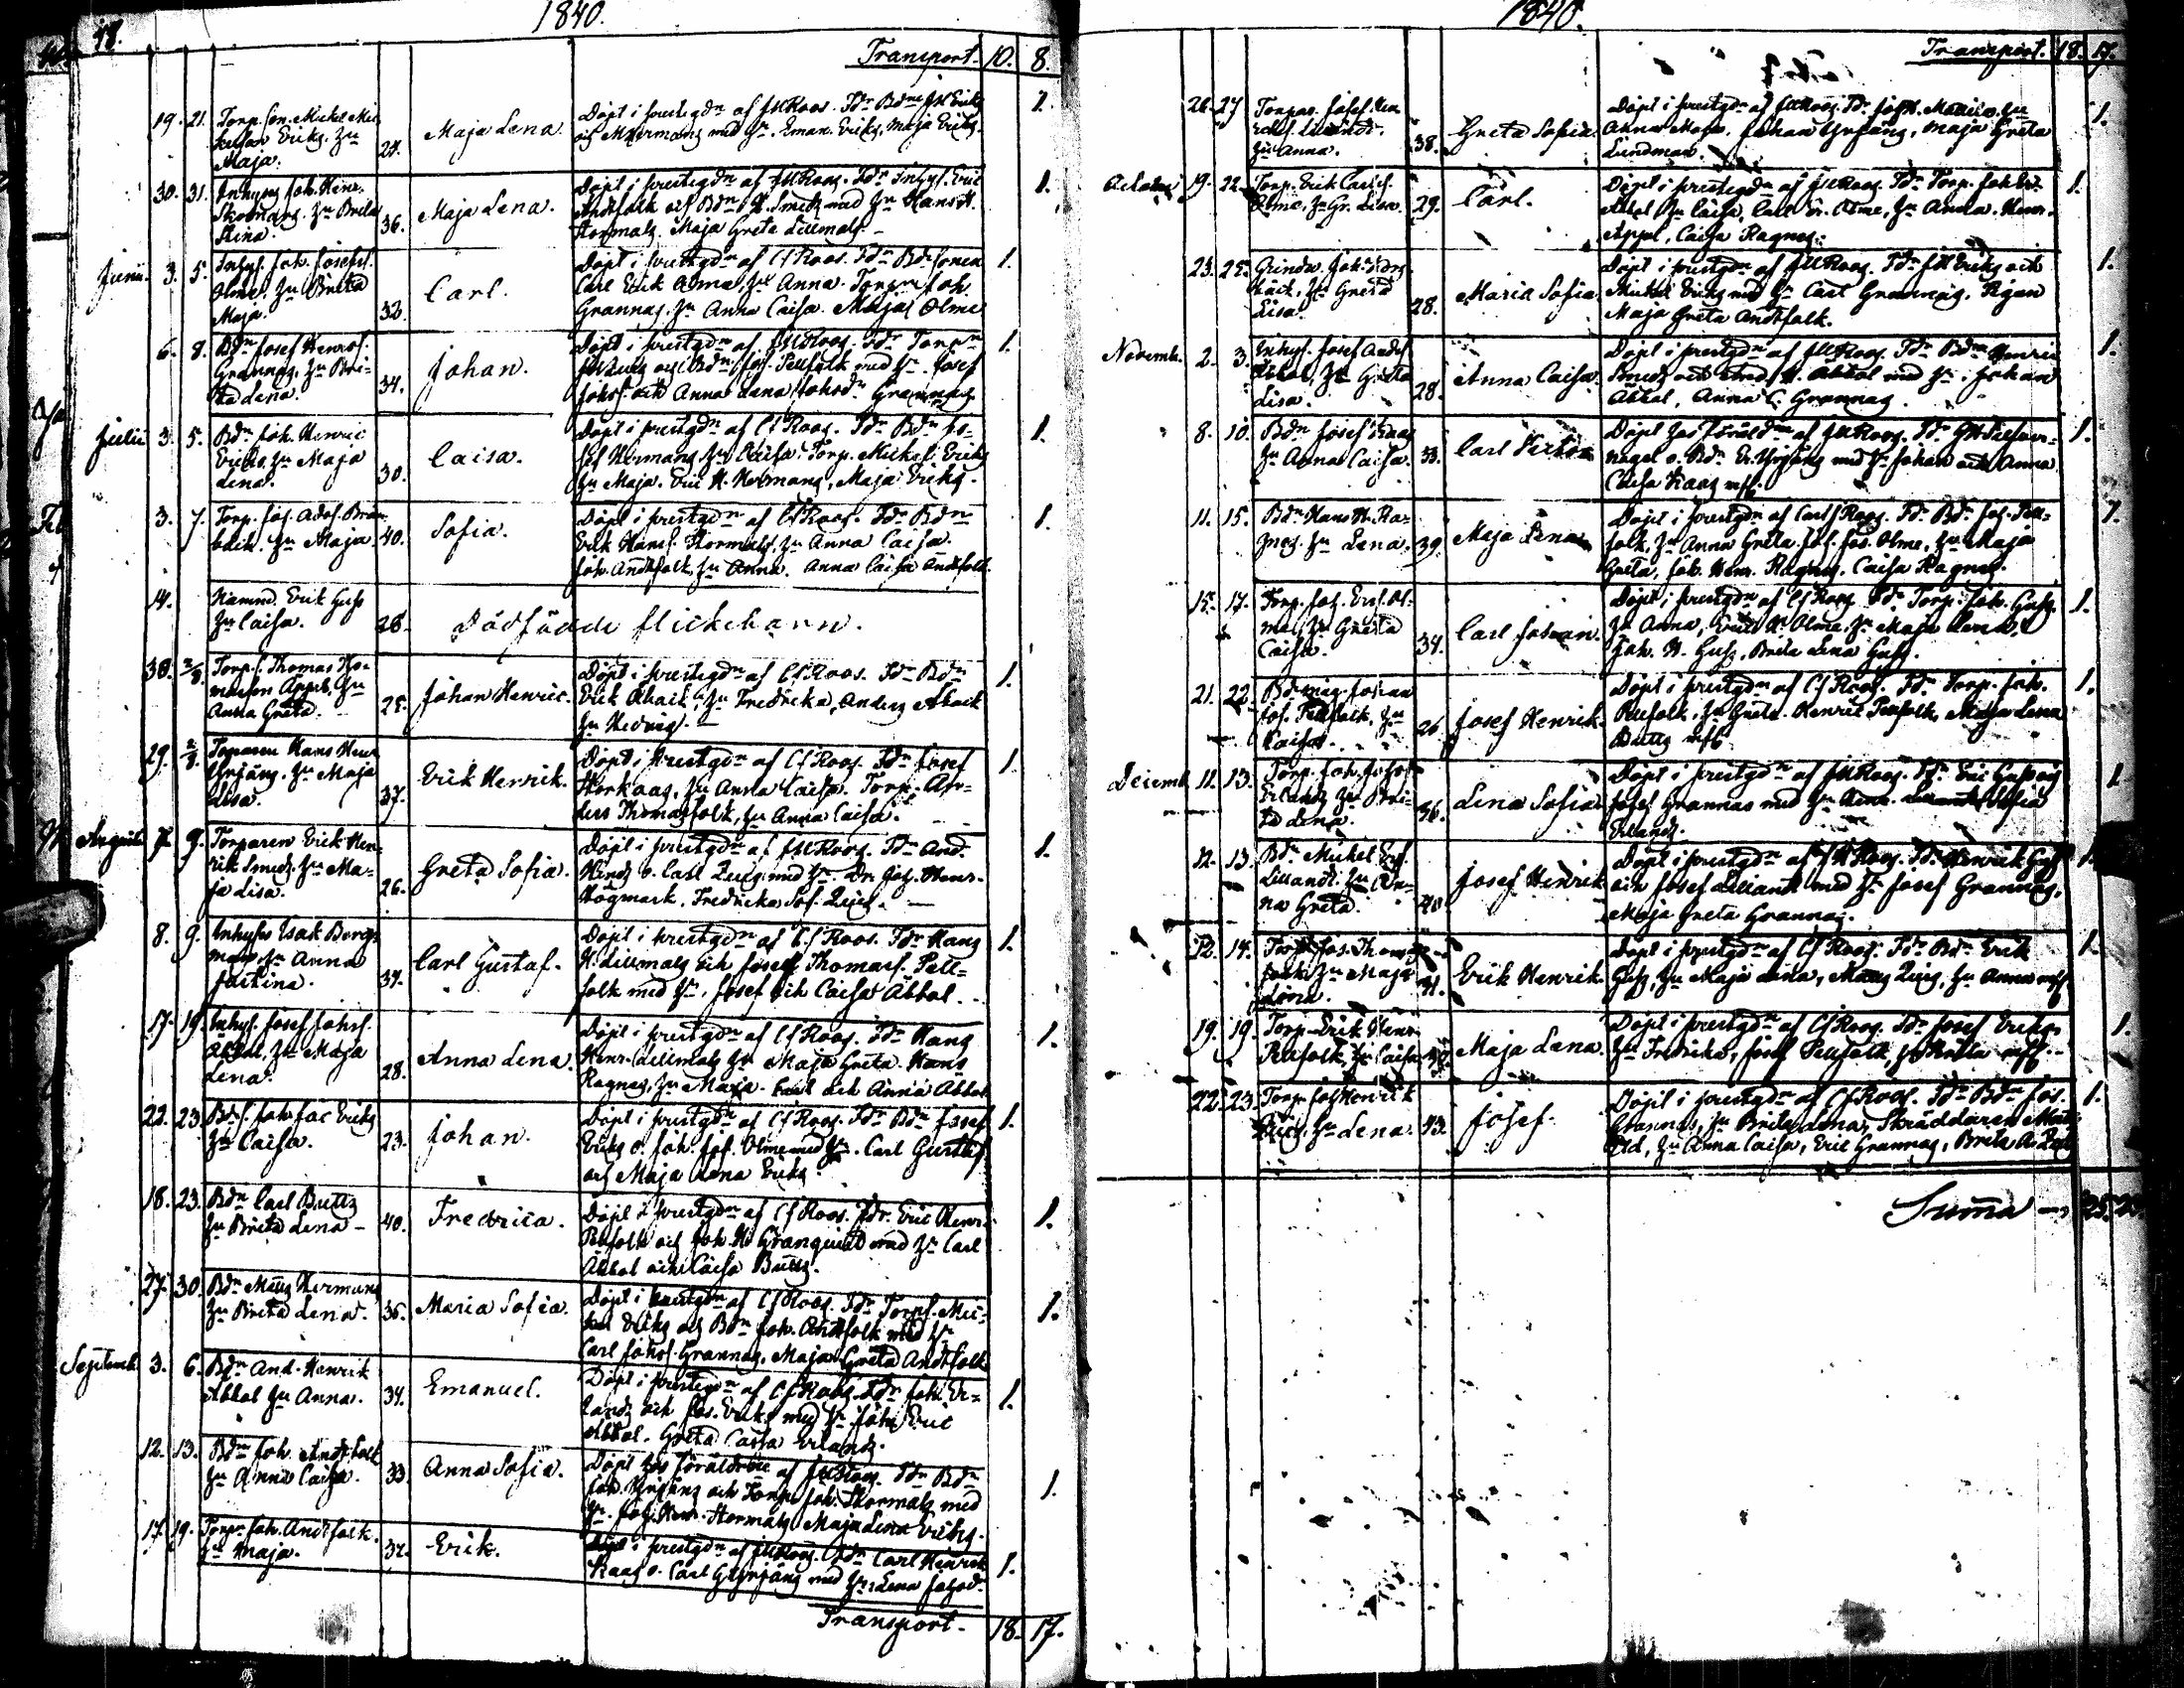 48.
1840.
Transport. 10. 8.
19. 21. Torp.son. Michel Mic
kelson Eriks. Hu
Maja. 24. Maja Lena.
Döpt i prestgdn af JM Roos. Fdr Bdne JH Eriks
och M. Hermans med Hr. Eman. Eriks, Maja Eriks. 1.
30. 31. Inhyses Joh. Henr.
Skormars. Hu Brita
Stina. 36. Maja Lena.
Döpt i prestegdn af JM Roos. Fdr Inhys. Eric
Andtfolk och Bdn H. Smeds med Hu Hans H.
Stormals. Maja Greta Lillmals. 1.
Junii. 3. 5. Inhys. Joh. Josefs.
Olme. Hu Brita
Maja. 32. Carl.
Döpt i prestgdn af CJ Roos. Fdr Bdesonen
Carl Erik Olme, Hu Anna. Torpn Joh.
Grannas, Hu Anna Caisa. Maja Olme 1.
6. 8. Bdn Josef Henrss.
Grannas, Hu Bri-
ta Lena. 34. Johan.
Döpt i prestgdn af JM Roos. Fdr Torpn
och Bdn Jos. Pellfolk med Hr. Josef
Johss. och Anna Lena Johsdr. Grannas. 1.
Julii 3. 5. Bdn Joh. Henric
Eriks. Hu Maja
Lena. 30. Caisa.
Döpt i prestgdn af CJ Roos. Fdr Bdn Jo-
sef Hermans, Hu Caisa. Torp. Mickel Eriks
Hu Maja. Eric H. Hermans, Maja Eriks. 1.
3. 7. Torp. Jos. Adof. Bran
back. Hu Maja. 40. Sofia.
Döpt i prestgdn af CJ Roos. Fdr Bdn
Erik Hanss. Stormals, Hu Anna Caisa.
Joh. Andtfolk, Hu Anna. Anna Caisa Andtfolk. 1.
14. Namnd. Erik Guss
Hu Caisa. 28. Dödfödde flickebarn.
30. 2/8. Torp.s. Thomas Tho-
masson Appel, Hu
Anna Greta. 25. Johan Henric.
Döpt i prestgdn af CJ Roos. Fdr Bdn
Erik Aback, Hu Fredrika, Anders Aback
Hu Hedvig. 1.
29. 2/8. Torparen Hans Henr
Yrjäng. Hu Maja
Lisa. 37. Erik Henrik.
Döpt i prestgdn af CJ Roos. Fdr Josef
Storkaas, Hu Anna Caisa. Torp. An-
ders Thomasfolk, Hu Anna Caisa. 1.
Augusti 7. 9. Torparen Erik Hen-
rik Smeds, Hu Ma-
ja Lisa. 26. Greta Sofia.
Döpt i prestgdn af JM Roos. Fdr And.
Hinds o. Carl Quis med Hr. Dr. Joh. Henr.
Högmark. Fredrika Sof. Quis. 1.
8. 9. Inhyses Isak Bergs
man, Hu Anna
Justina. 34. Carl Gustaf.
Döpt i prestgdn af CJ Roos. Fdr Hans
H. Lillmals och Josef Thomass. Pell-
folk med Hr. Josef och Caisa Abbal. 1.
17. 19. Inhys. Josef Johss.
Abbal, Hu Maja
Lena. 28. Anna Lena.
Döpt i prestgdn af CJ Roos. Fdr Hans
Henr. Lillmals Hu Maja Greta. Hans
Ragnas, Hu Maja. Carl och Anna Abbal. 1.
22. 23. Bds. Joh. Jac Eriks
Hu Caisa. 23. Johan.
Döpt i prestgdn af CJ Roos. Fdr Bdn Josef
Eriks o. Joh. Jos. Olme med Hr. Carl Gustaf
och Maja Lena Eriks. 1.
18. 23. Bdn Carl Butts
Hu Brita Lena. 40. Fredrica.
Döpt i prestgdn af CJ Roos. Fdr. Eric Henr.
Pellfolk och Joh. H. Granquist med Hr Carl
Abbal och Caisa Butts. 1.
27. 30. Bdn Matts Hermans
Hu Brita Lena. 35. Maria Sofia.
Döpt i prestgdn af CJ Roos. Fdr Torps. Mic-
kel Eriks och Bdn Joh. Andtfolk med Hr
Carl Johss. Grannas, Maja Greta Andtfolk 1.
Septemb. 3. 6. Bdn And. Henrik
Abbal Hu Anna. 34. Emanuel.
Döpt i prestgdn af CJ Roos. Fdr Joh. Er-
lands och Jos. Eriks med Hr Joh. Eric
Abbal. Greta Caisa Erlands. 1.
12. 13. Bdn Joh. Andtfolk
Hu Anna Caisa. 33. Anna Sofia.
Döpt hos föräldrarne af JM Roos. Fdr Bdn
Joh. Yrjäng och Torpn Joh. Stormals med
Hr. Joh. Henr. Stormals. Maja Lena Eriks. 1.
17. 19. Torpn Joh. Andtfolk.
Hu Maja. 32. Erik.
Döpt i prestgdn af JM Roos. Fdr Carl Henrik
Kaas o. Carl G. Yrjäng med Hr. Lena Johsdr. 1.
Transport. 18. 17.
1840.
Transport. 18. 17.
26. 27 Torpar. Josef
Lillandt.
Hu Anna. 38. Greta Sofia.
Döpt i prestgdn af JM Roos. Fdr Josef
Anna Maja. Johan Yrjäng, Maja Greta
Lundman. 1.
October 19. 22. Torp. Erik Carls.
Olme, Hu Gr. Lisa. 29. Carl.
Döpt i prestegdn af JM Roos. Fdr Torp. Joh.
Abbal Hu Caisa, Carl Er. Olme, Hu Anna. Henr.
Appel, Caisa Ragnas. 1.
23. 25.
Hu Greta
Lisa. 28. Maria Sofia
Döpt i prestgdn af JM Roos. Fdr JH Eriks och
Mickel Eriks med Hr Carl Grannas. Pigan
Maja Greta Andtfolk. 1.
Novemb. 2. 3. Inhys. Josef Anders
Abbal, Hu Greta
Lisa. 28. Anna Caisa.
Döpt i prestgdn af JM Roos. Fdr Bdn Henric
Smeds och And. H. Abbal med Hr. Johan
Abbal, Anna C. Grannas. 1.
8. 10. Bdn Josef Kaas
Hu Anna Caisa. 33. Carl Victor
Döpt hos föräldrne af JM Roos. Fdr GH Silfver-
nagel o. Bdn Er. Yrjäng med Hr Johan och Anna
Caisa Kaas mfl. 1.
11. 15. Bdn Hans H. Ra-
gnas. Hu Lena. 39. Maja Lena
Döpt i prestgdn af Carl J Roos. Fdr Bdn Jos. Pell-
folk, Hu Anna Greta. Joh. Jos. Olme, Hu Maja
Greta, Joh. Henr. Ragnas. Caisa Ragnas. 1.
15. 17. Torp. Joh. Ers. Ol-
me, Hu Greta
Caisa. 34. Carl Johan.
Döpt i prestgdn af CJ Roos Fdr Torp. Joh. Guss.
Hu Anna, Erik H. Olme, Hu Maja Lena,
Joh. H. Guss, Brita Lena Guss. 1.
21. 22. Bdemåg Johan
Jos. Pellfolk, Hu
Caisa. 26 Josef Henrik.
Döpt i prestgdn af CJ Roos. Fdr Torp. Joh.
Pellfolk, Hu Greta. Henric Pellfolk, Maja Lena
Butts mfl. 1.
Decemb. 11. 13. Torp. Joh. Johss
Erlands Hu Bri-
ta Lena. 36. Lena Sofia
Döpt i prestgdn af JM Roos. Fdr Eric Guss och
Josef Grannas med Hu Sofia
Erlands. 1
12. 13. Bdn Mickel Ers.
Lillandt. Hu An-
na Greta. 40 Josef Henrik
Döpt i prestgdn af JM Roos. Fdr Henrik Guss
och Josef Lillandt med Hr Josef Grannas,
Maja Greta Grannas. 1.
12. 14. Torp. Jos. Thomas
folk Hu Maja
Lena. 31. Erik Henrik.
Döpt i prestgdn af CJ Roos. Fdr Bdn Erik
Guss, Hu Maja Lena, Matts Quis, Hu Anna mfl. 1.
19. 19. Torp. Erik Henr
Pellfolk, Hu Caisa Maja Lena.
Döpt i prestgdn af CJ Roos. Fdr Josef Eriks.
Hu Fredrika, Josef Pellfolk, Hu Brita mfl. 1.
22. 23. Torp. Joh Henrik
Quis, Hu Lena. 43. Josef.
Döpt i prestgdn af CJ Roos. Fdr Bdn Jos.
Grannas, Hu Brita Lena, Skräddaren Matts
Hu Anna Caisa, Eric Grannas, Brita 1.
Summa 25.